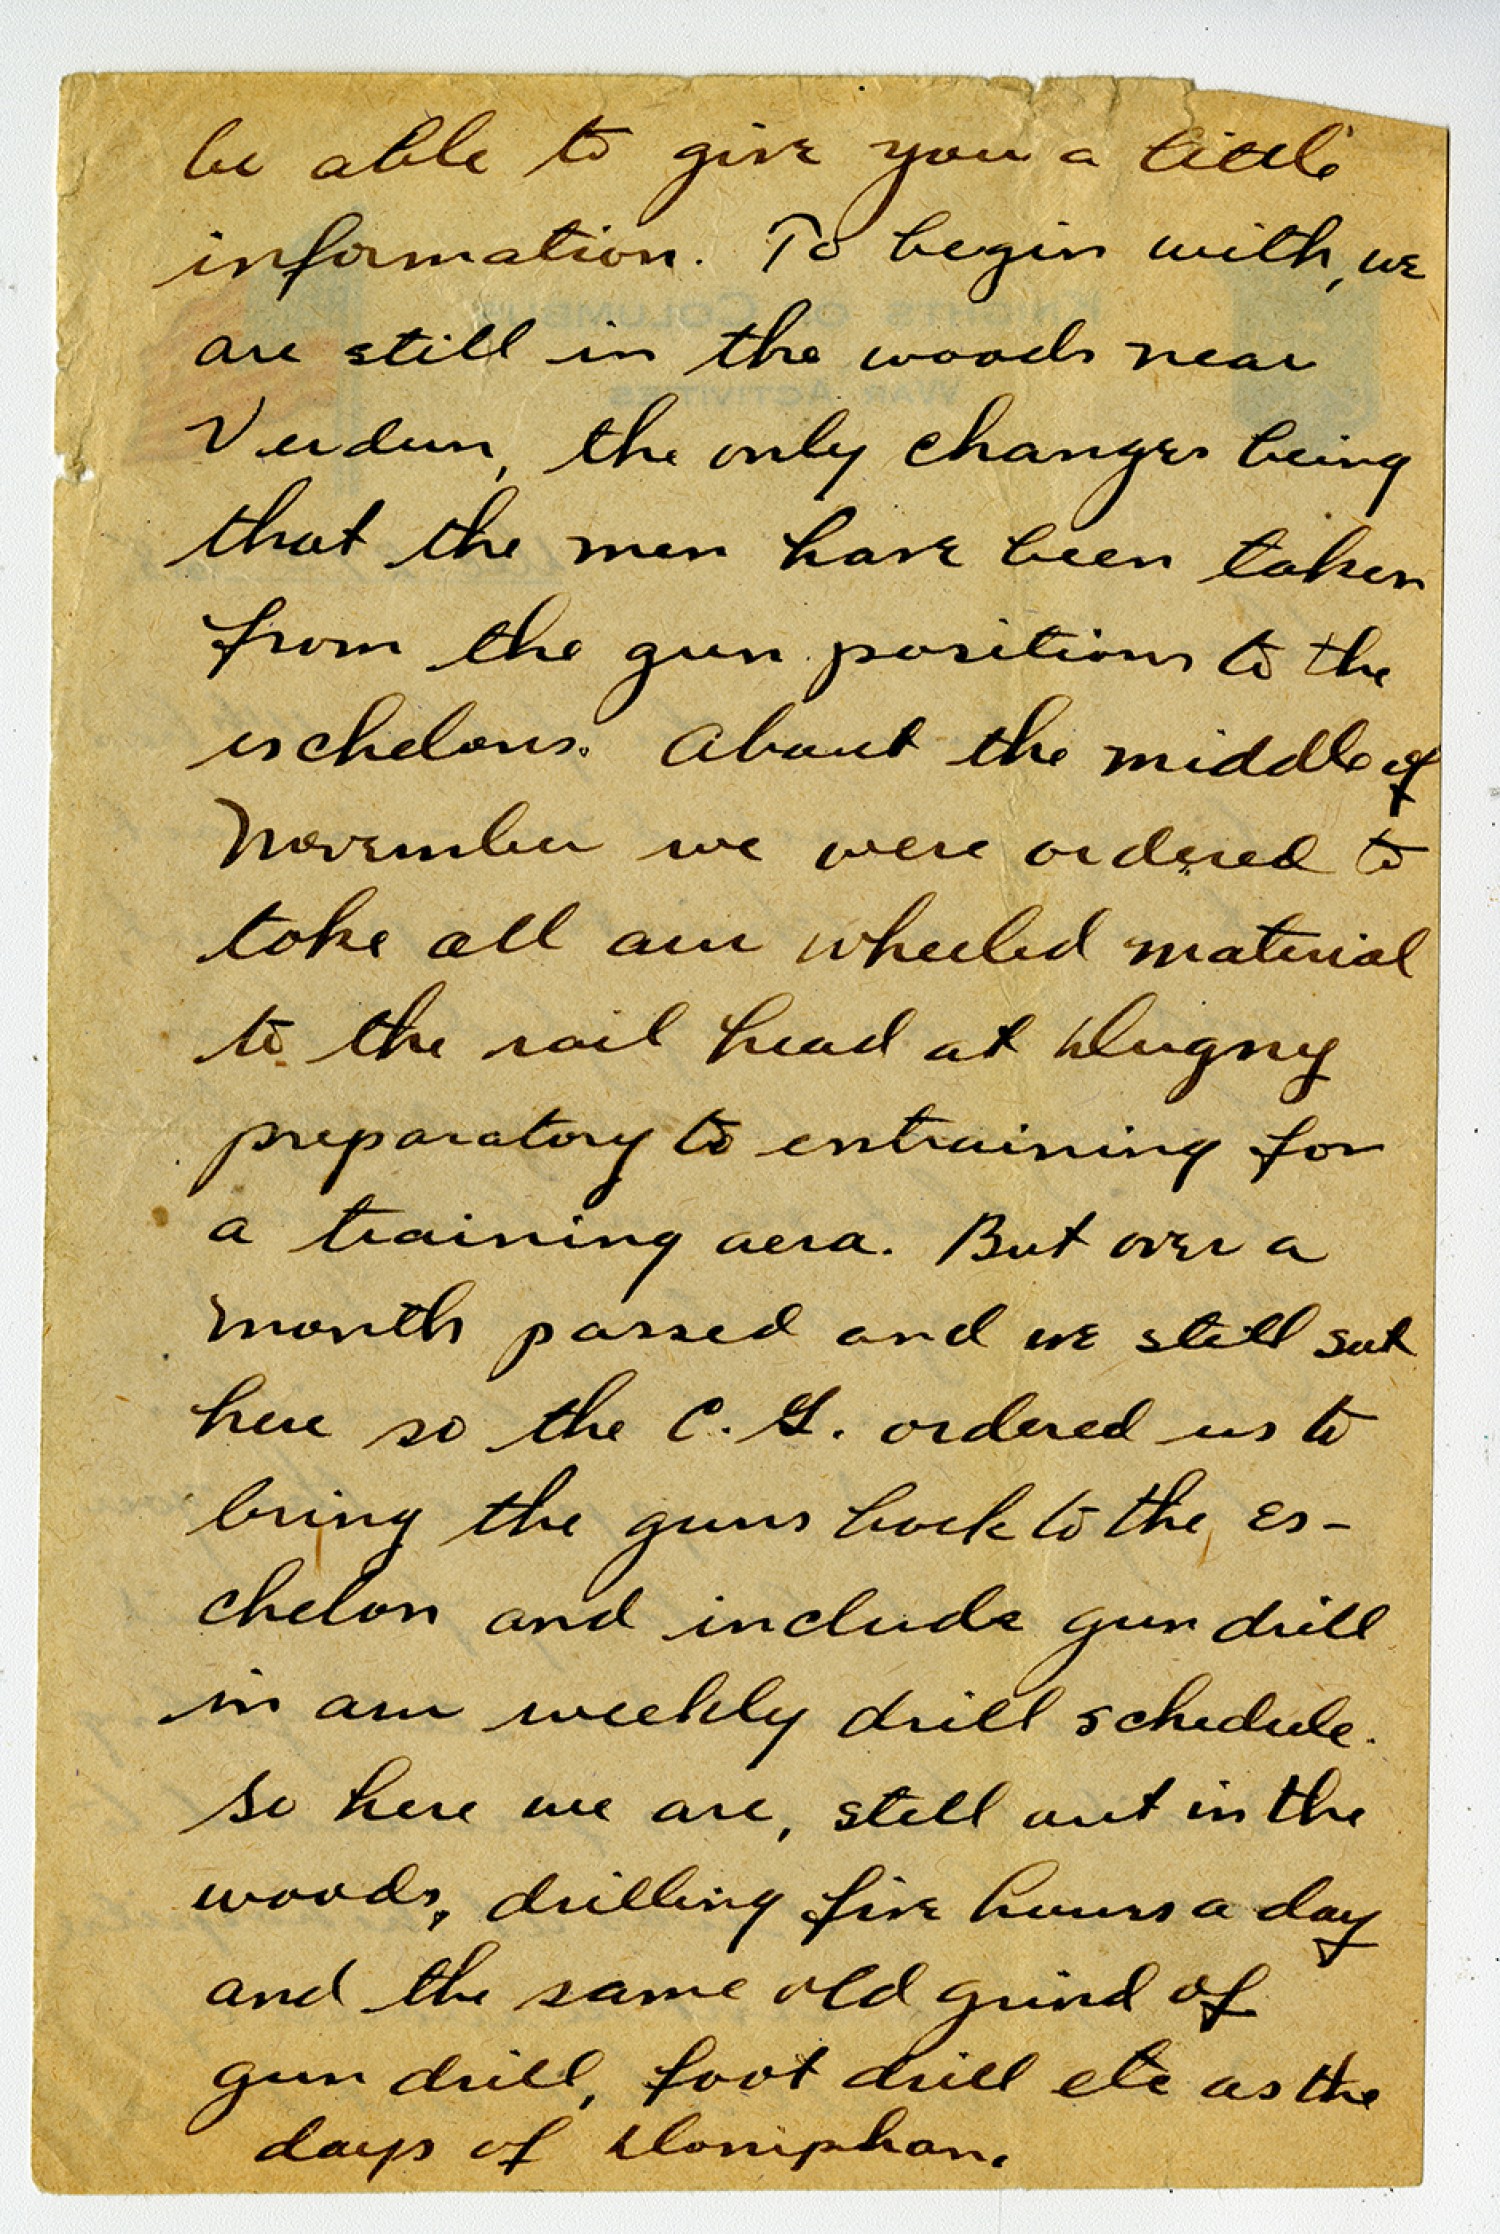 be able to give you a little
information. To begin with, we
are still in the woods near
Verdun, the only changes being
that the men have been taken
from the gun positions to the
eschelons. About the middle of
November we were ordered to
take all our wheeled material
to the rail head at Dugny
preparatory to entraining for
a training aera. But over a
month passed and we still sat
here so the C.G. ordered us to
bring the guns back to the es-
chelon and include gun drill
in our weekly drill schedule.
So here we are, still out in the
woods, drilling five hours a day
and the same old grind of
gun drill, foot drill etc as the
days of Doniphan.
KNIGHTS OF COLUMBUS
WAR ACTIVITIES